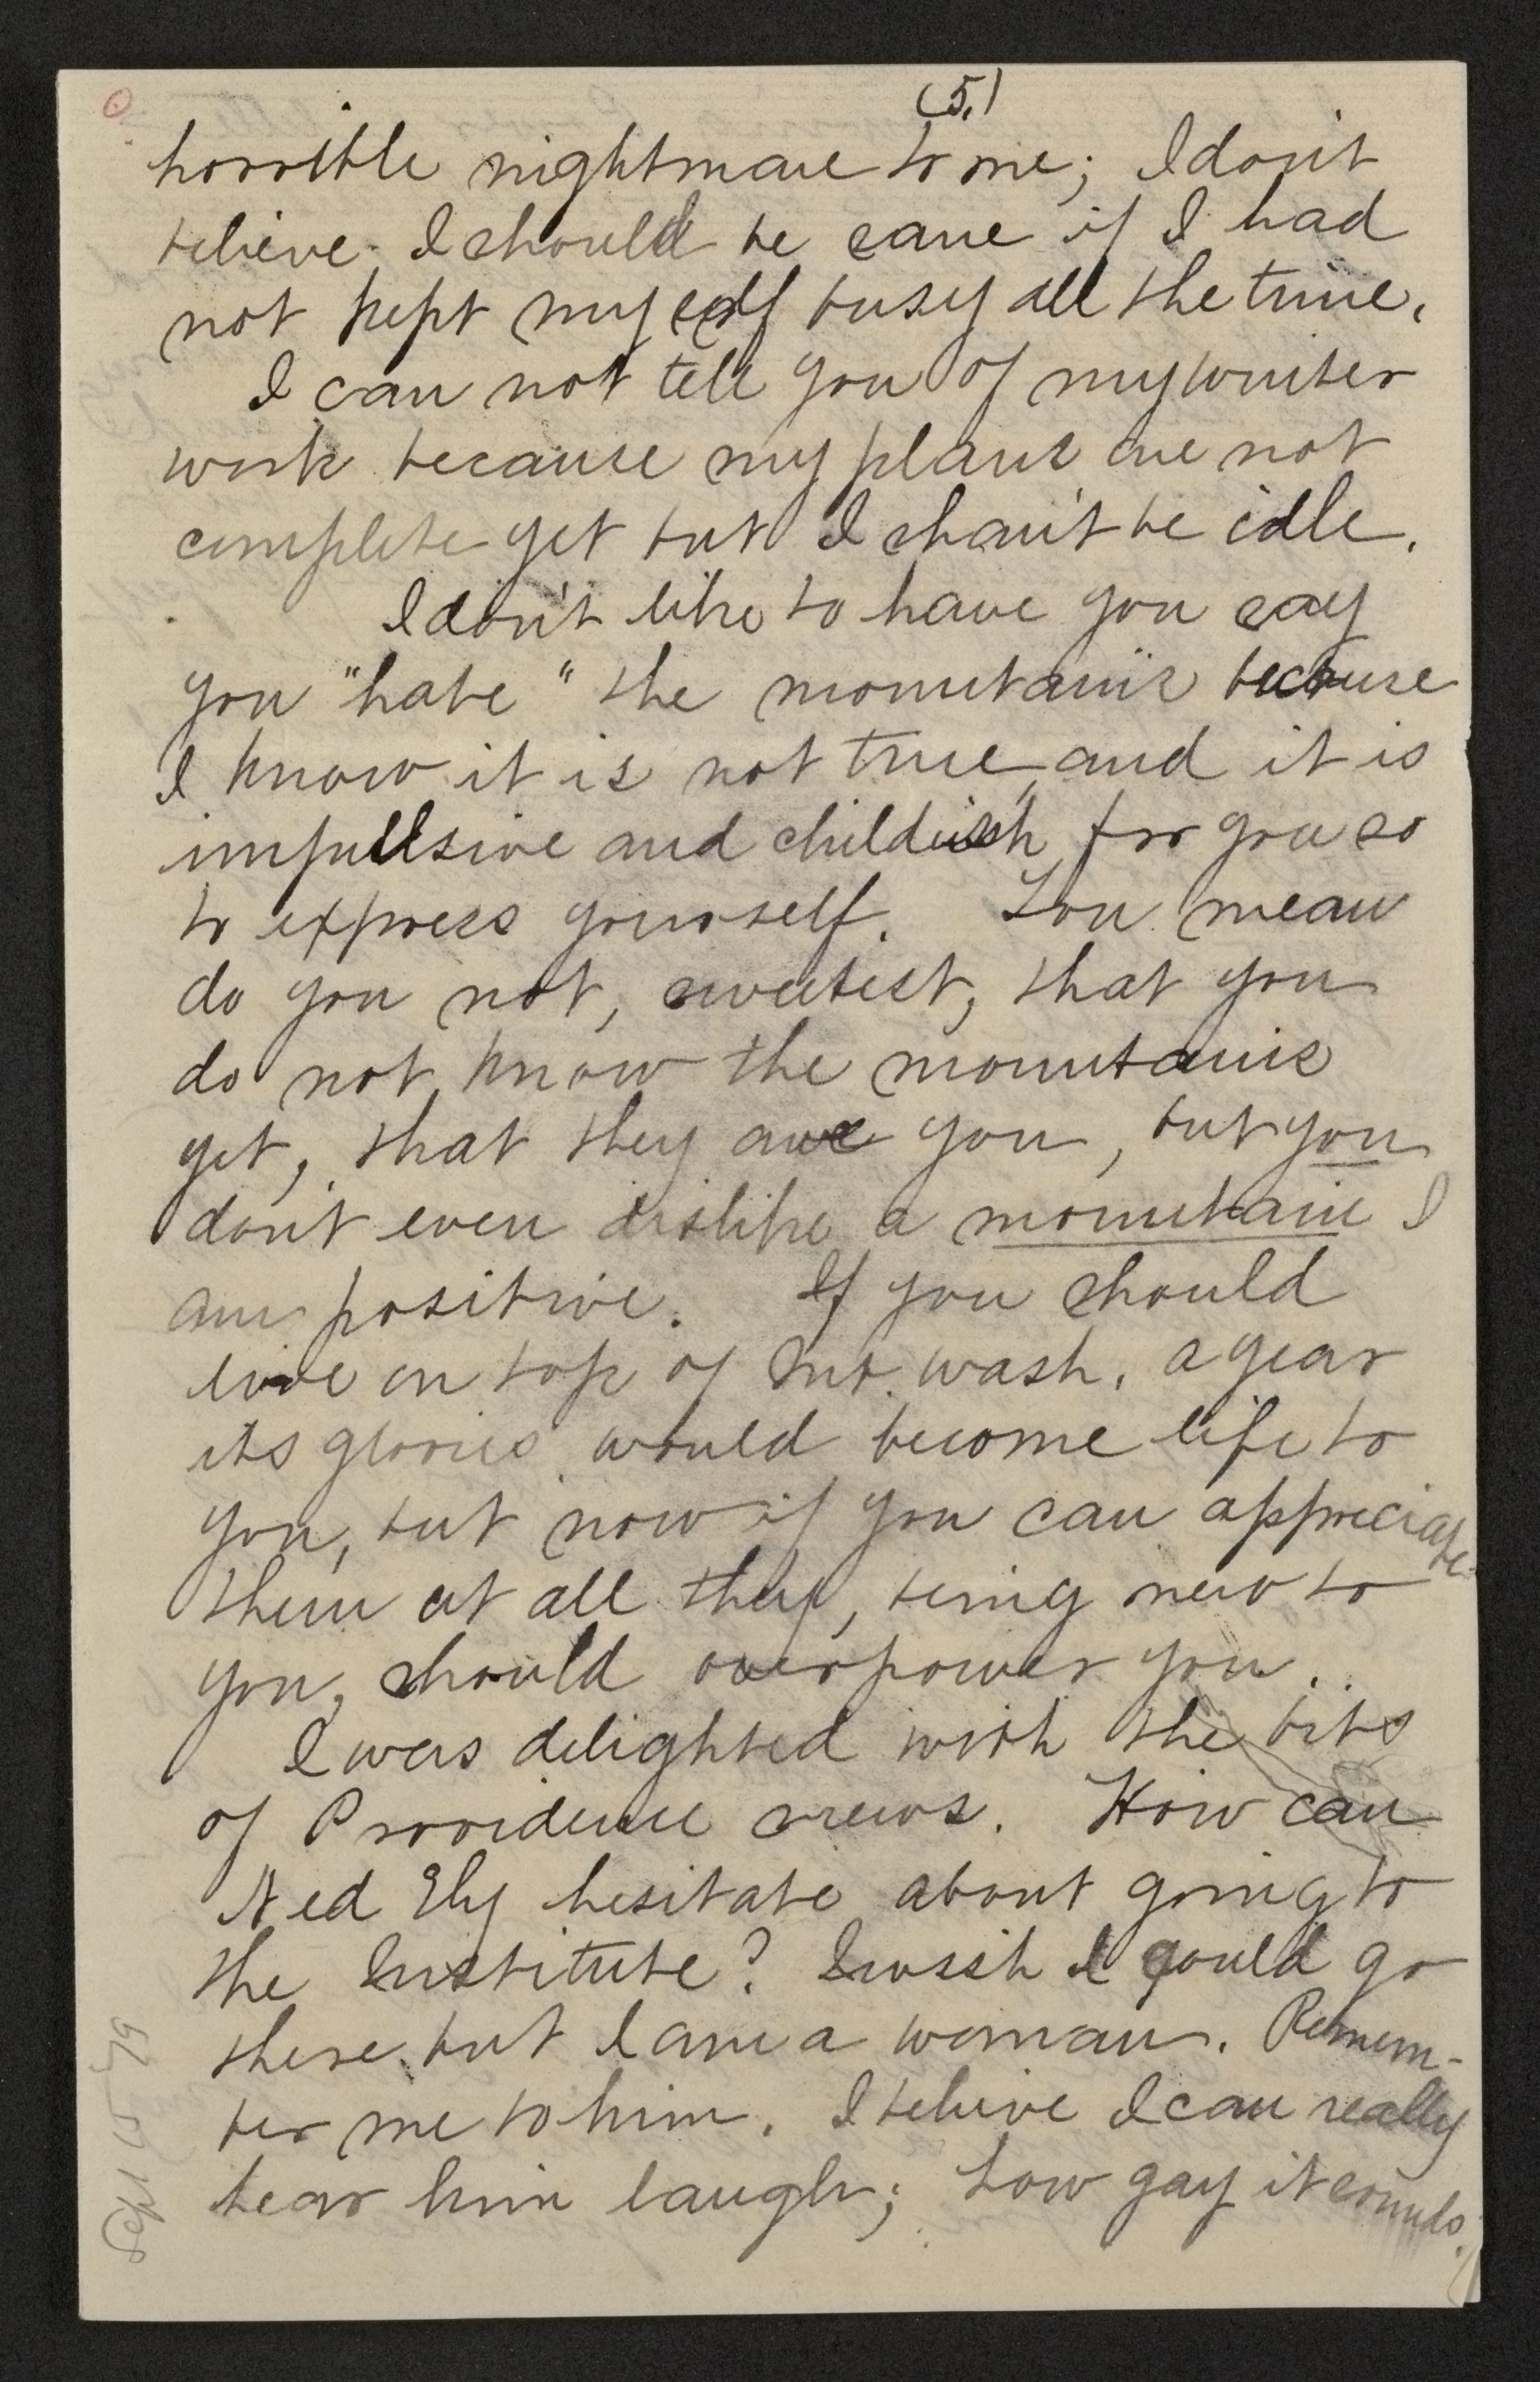 (5.)
horrible nightmare to me; I don't
believe I should be sane if I had
not kept myself busy all the time.
I can not tell you of my winter
work because my plans are not
complete yet but I shan't be idle.
I don't like to have you say
you "hate" the mountains because
I know it is not true, and it is
impullsive and childish for you so
to express yourself. You mean
do you not, sweetest, that you
do not know the mountains
yet, that they awe you, but you
don't even dislike a mountain I
am positive. If you should
live on top of Mt. Wash. a year
its glories would become life to
you, but now if you can appreciate
them at all they, being new to
you, should overpower you.
I was delighted with the bits
of Providence news. How can
Ned Ely hesitate about going to
the Institute? I wish I could go
there but I am a woman. Remem-
ber me to him. I believe I can really
hear him laugh; how gay it sounds.
Sept 15 79